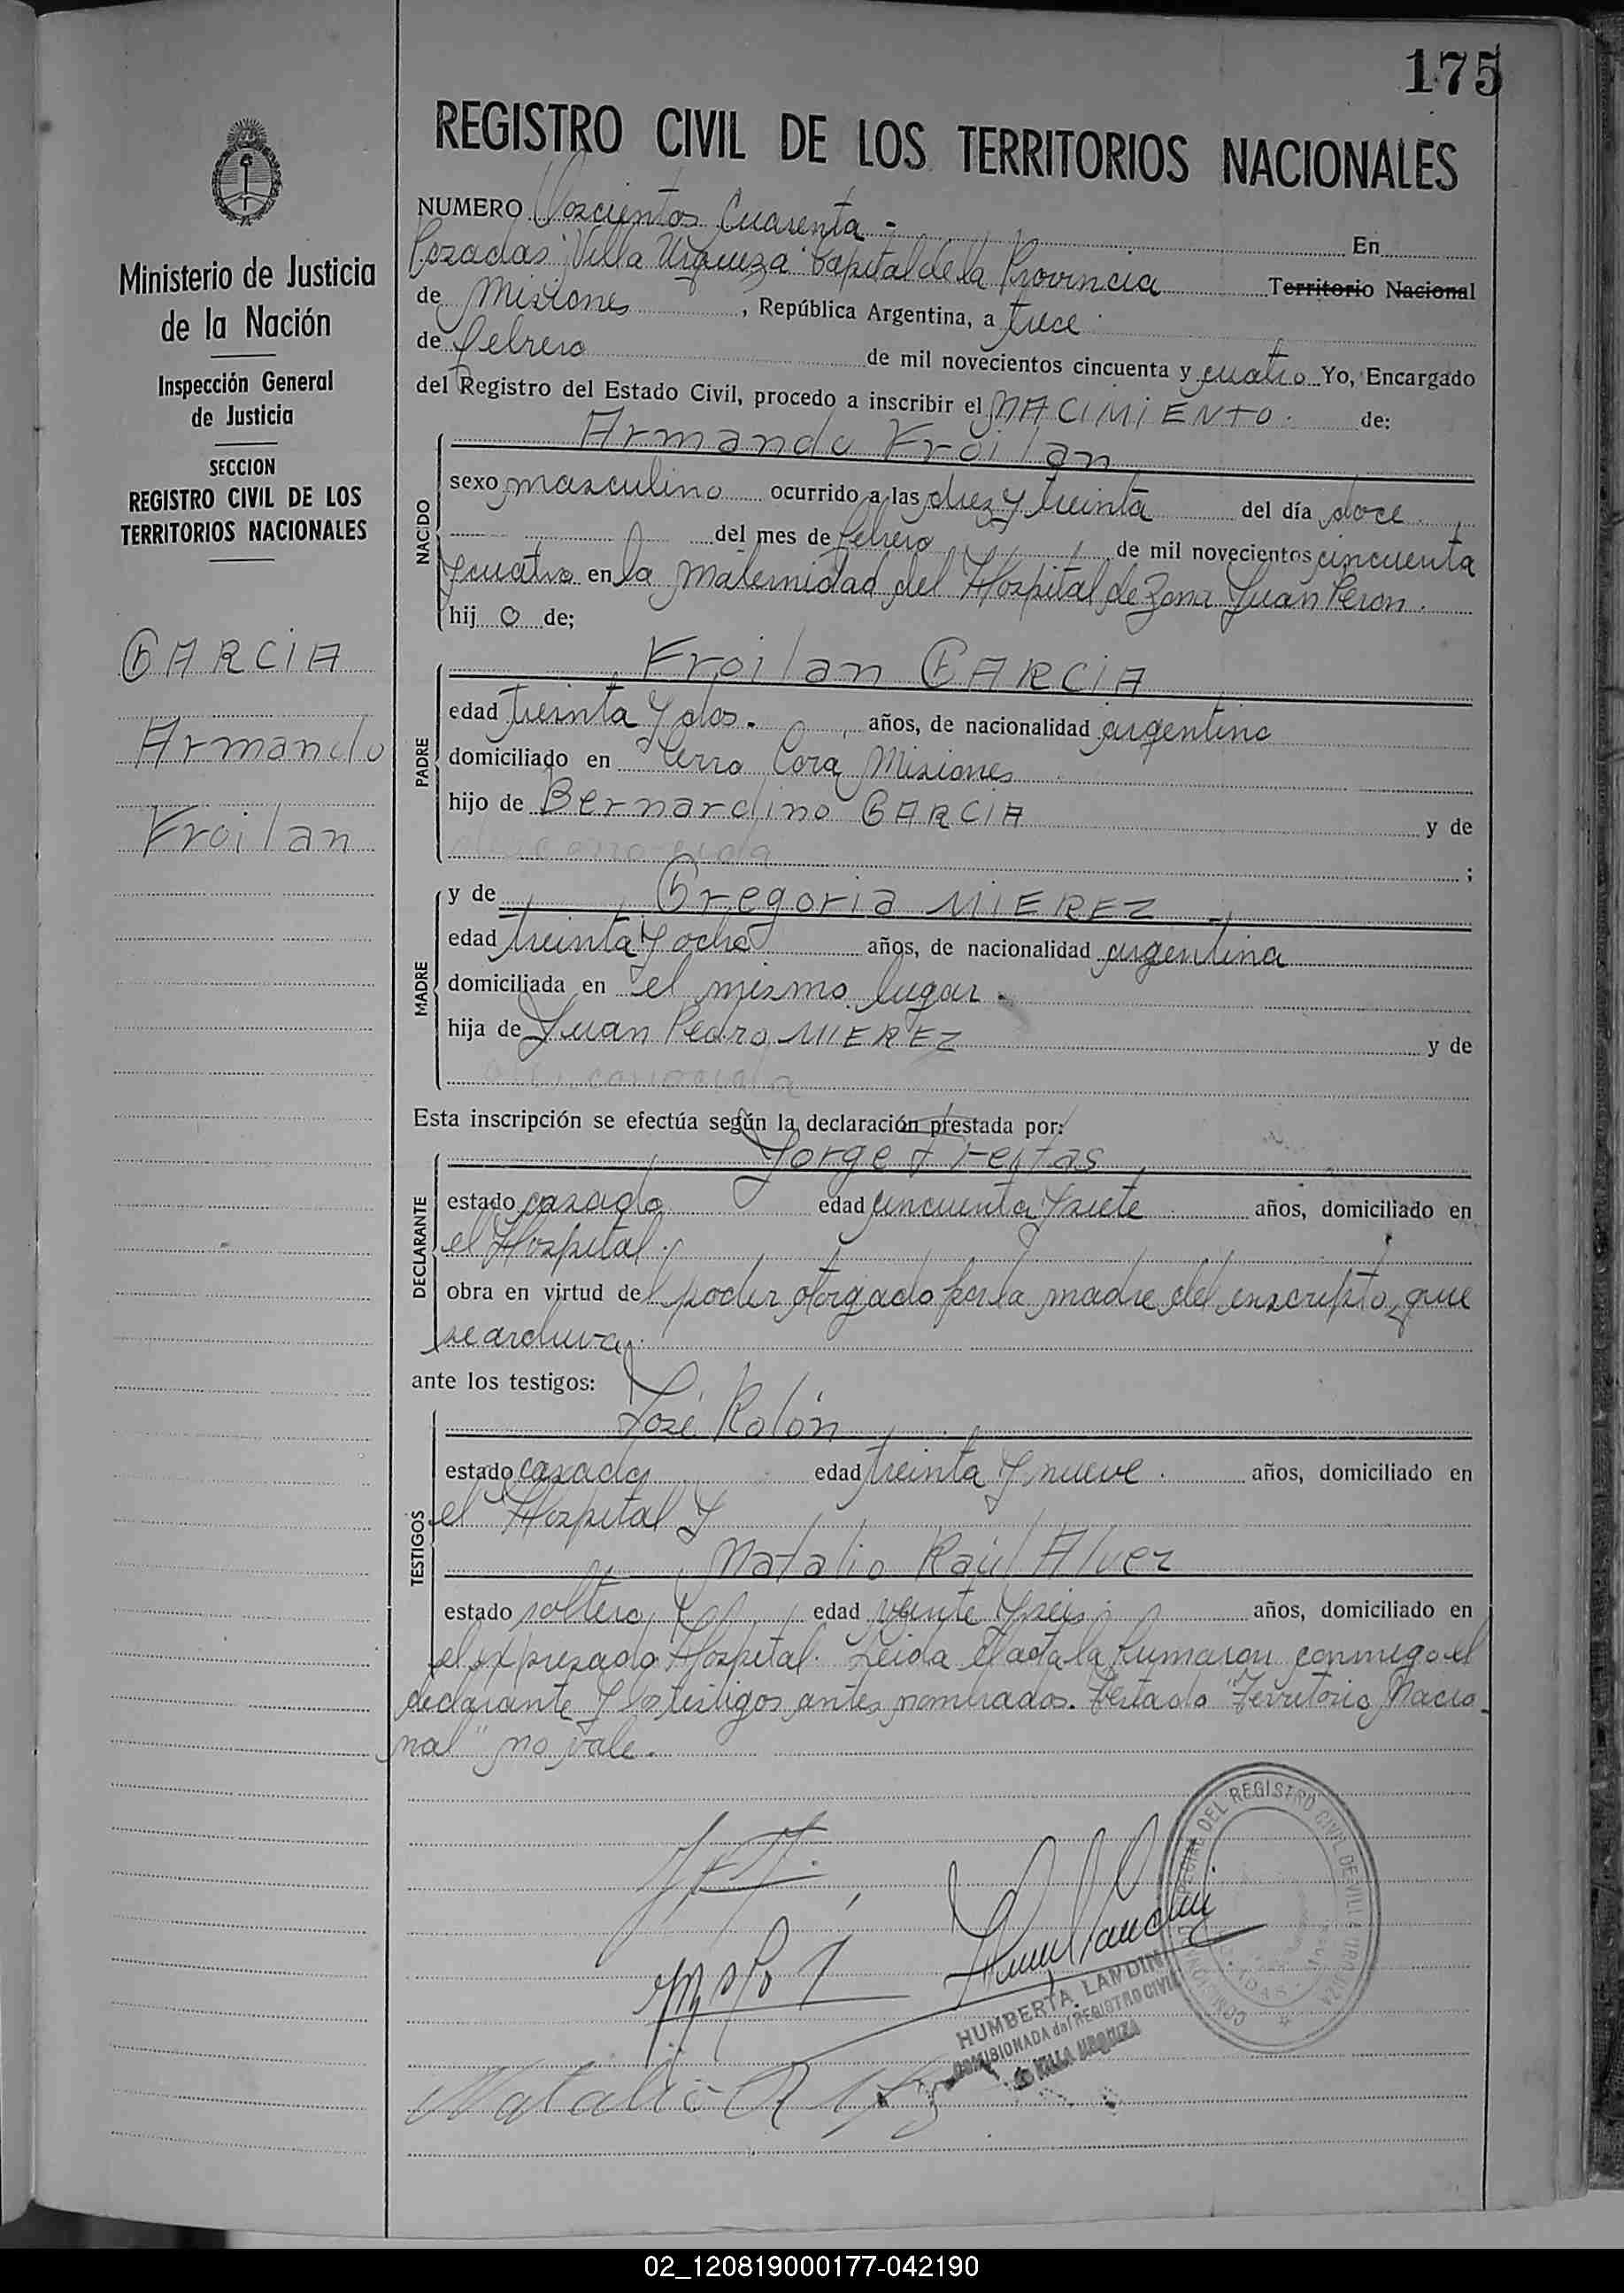 175
REGISTRO CIVIL DE LOS TERRITORIOS NACIONALES
Ministerio de Justicia
de la Nación
Inspección General
de Justicia
SECCION
REGISTRO CIVIL DE LOS
TERRITORIOS NACIONALES
GARCIA
Armando
Froilan
NUMERO Doscientos Cuarenta - En
Posadas "Villa Urquiza" Capital de la Provincia Territorio Nacional
de Misiones, República Argentina, a trece
de febrero de mil novecientos cincuenta y cuatro Yo, Encargado
del Registro del Estado Civil, procedo a inscribir el NACIMIENTO. de:
Armando Froilan
NACIDO
sexo masculino ocurrido a las diez y treinta del día doce
del mes de febrero de mil novecientos cincuenta
y cuatro en la maternidad del Hospital de Zona Juan Peron.
hij o de;
Froilan GARCIA
PADRE
edad treinta y dos. años, de nacionalidad argentino
domiciliado en Cerro Cora Misiones
hijo de Bernardino GARCIA y de
;
y de Gregoria MIEREZ
MADRE
edad treinta y ocho años, de nacionalidad argentina
domiciliada en el mismo lugar.
hija de Juan Pedro MIEREZ y de
Esta inscripción se efectúa según la declaración prestada por:
Jorge F Freitas
DECLARANTE
estado casado edad cincuenta y siete años, domiciliado en
el Hospital.
obra en virtud del poder otorgado por la madre del inscripto, que
se archiva.
ante los testigos:
José Rolón
TESTIGOS
estado casado edad treinta y nueve. años, domiciliado en
el Hospital y
Natalio Raúl Alvez
estado soltero edad veinte y seis. años, domiciliado en
el expresado Hospital. Leida el acta la firmaron conmigo el
declarante y los testigos antes nombrados. Testado "Territorio Nacio-
nal" no vale.
COMISION ESPECIAL DEL REGISTRO CIVIL DE VILLA URQUIZA
HUMBERTA LANDINI
COMISIONADA del REGISTRO CIVIL
de VILLA URQUIZA
Natalio R
02_120819000177-042190